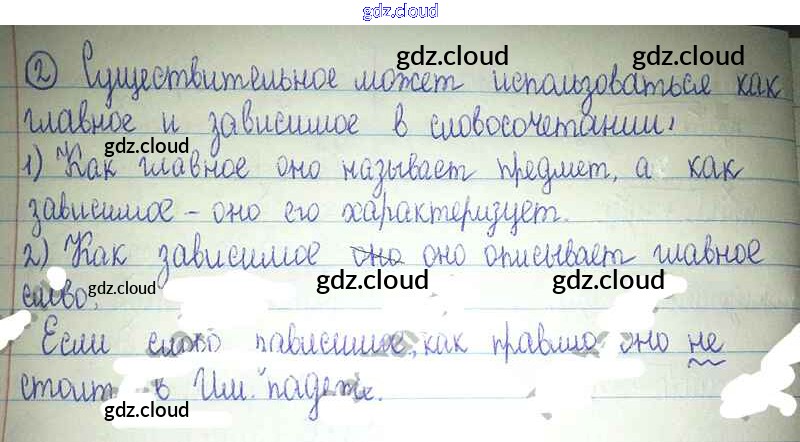 gdz.cloud
② Существительное может использоваться как
gdz.cloud gdz.cloud
главное и зависимое в словосочетании:
gdz.cloud
1) Как главное оно называет предмет, а как
зависимое – оно его характеризует.
gdz.cloud gdz.cloud
2) Как зависимое оно оно описывает главное
слово.
gdz.cloud gdz.cloud gdz.cloud
Если слово зависимое, как правило оно не
стоит в Им. падеже.
gdz.cloud